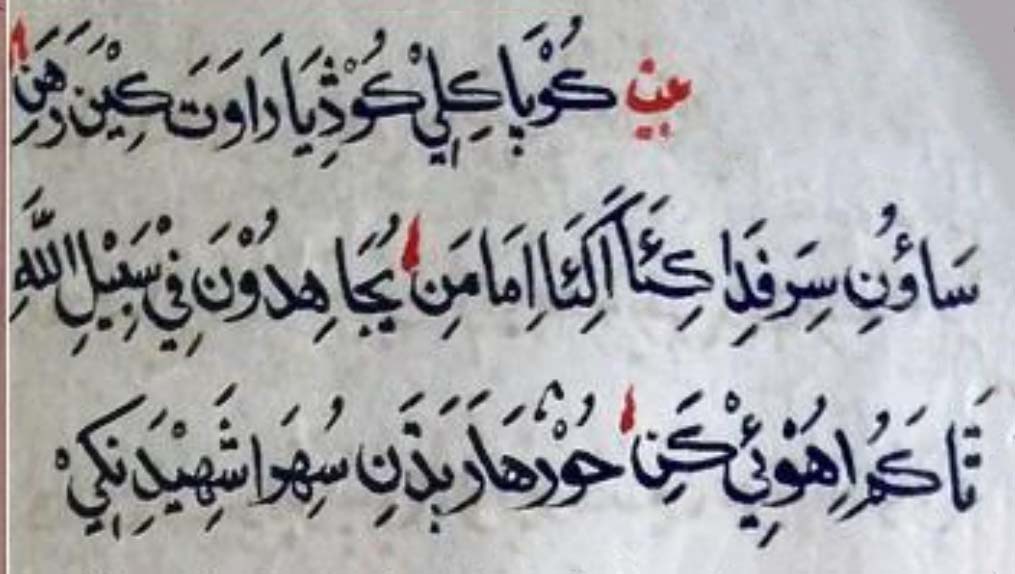 كُوْپَا كِلِيْ كُوْڎِيَا رَاوَتَ كِيْنَ رَهَنِ
سَاؤُنِ سِرَ فِدَا كِئَا اَكِئَا اِمَامَنِ يُجَاهِدُوْنَ فِيْ سَبِيْلِ اللّٰهِ
تَا كَمُ اِهُوْئِيْ كَنِ حُوْرُ هَارَ بَڌَنِ سُهِرَا شَهِيْدَنِكِيْ